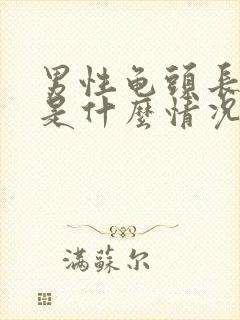 男性龟頭長
是什麼情況
滿蘇尔